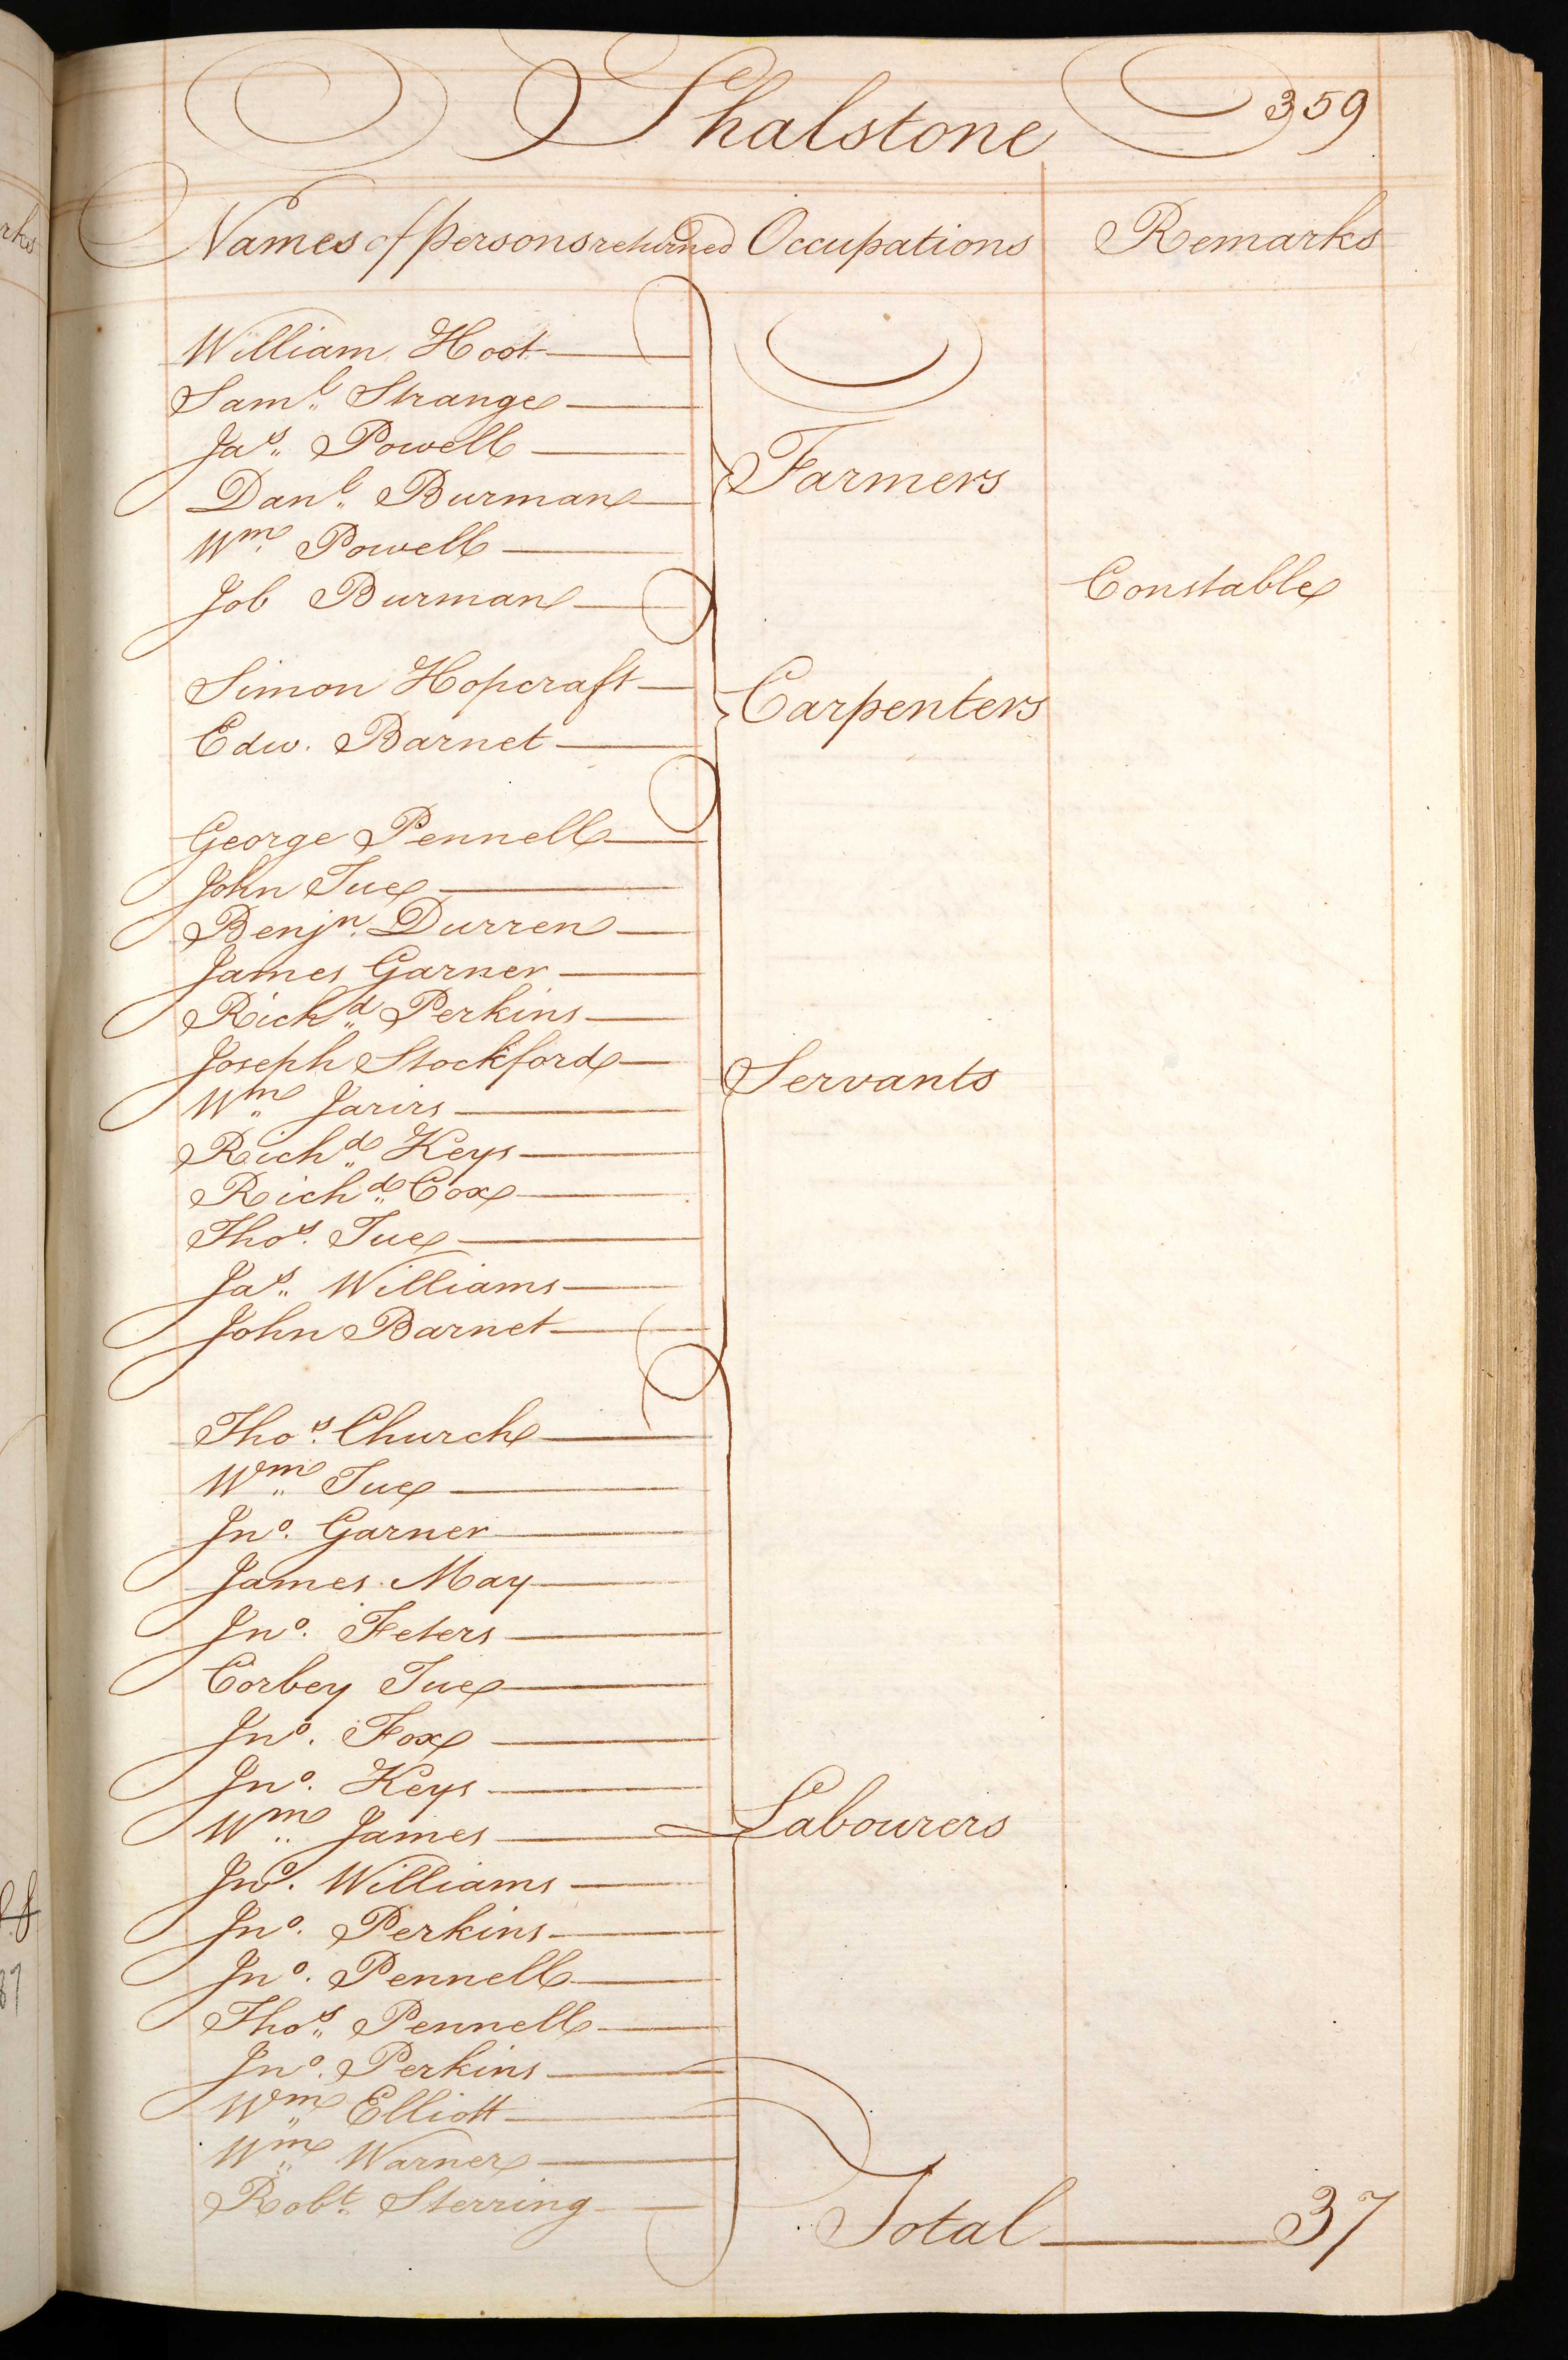 Shalstone 359
Names of persons returned Occupations Remarks
William Hoot
Saml. Strange
Jas. Powell
Farmers
Danl. Burman
Wm. Powell
Job Burman Constable
Simon Hopcraft
Carpenters
Edw. Barnet
George Pennell
John Tue
Benjn. Durren
James Garner
Richd. Perkins
Joseph Stockford
Servants
Wm. Jarirs
Richd. Keys
Richd. Cox
Thos. Tue
Jas. Williams
John Barnet
Thos. Church
Wm. Tue
Jno. Garner
James May
Jno. Feters
Corbey Tue
Jno. Fox
Jno. Keys
Wm. James Labourers
Jno. Williams
Jno. Perkins
Jno. Pennell
Thos. Pennell
Jno. Perkins
Wm. Elliott
Wm. Warner
Robt. Sterring
Total 37